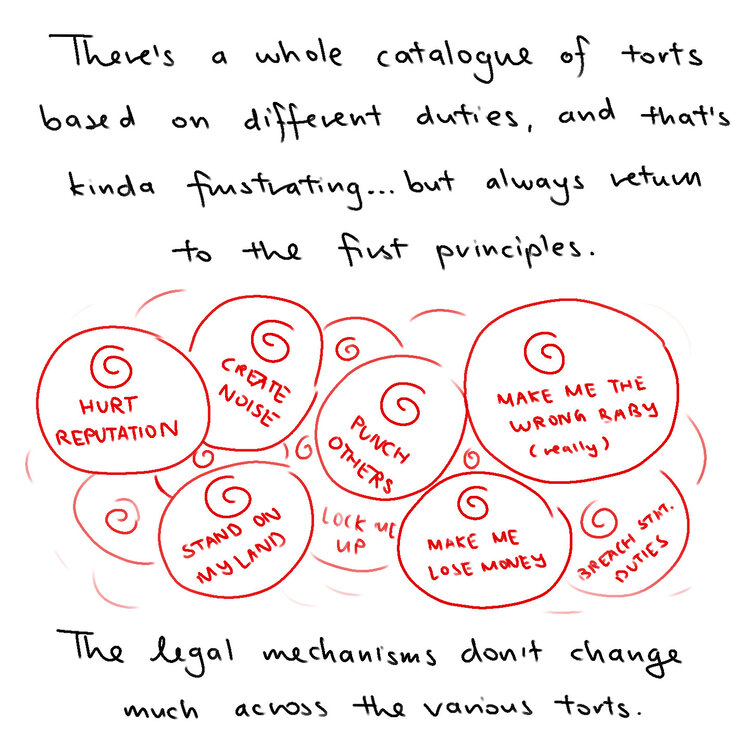 There's a whole catalogue of torts
based on different duties, and that's
kinda frustrating... but always return
to the first principles.
HURT
REPUTATION
CREATE
NOISE
PUNCH
OTHERS
MAKE ME THE
WRONG BABY
(really)
STAND ON
MY LAND
LOCK ME
UP
MAKE ME
LOSE MONEY
BREACH STAT.
DUTIES
The legal mechanisms don't change
much across the various torts.